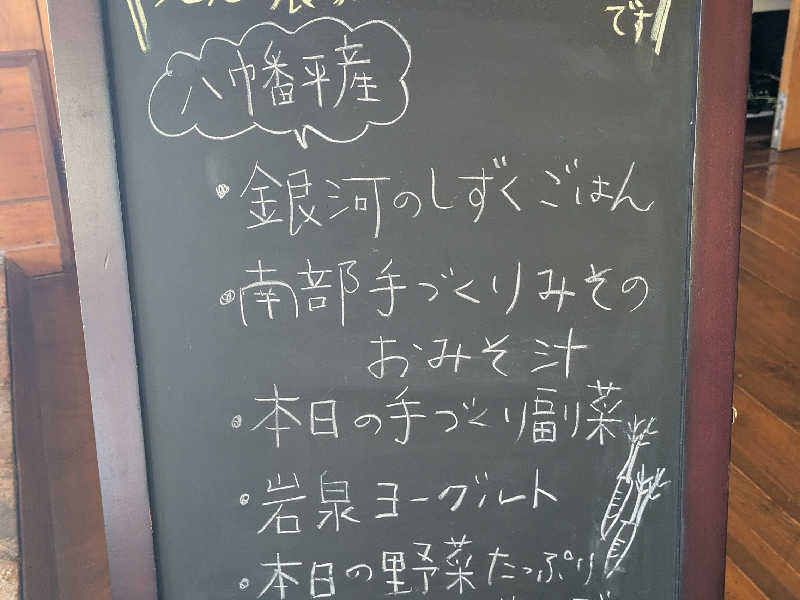 です
八幡平産
・銀河のしずくごはん
・南部手づくりみその
おみそ汁
・本日の手づくり副菜
・岩泉ヨーグルト
・本日の野菜たっぷり